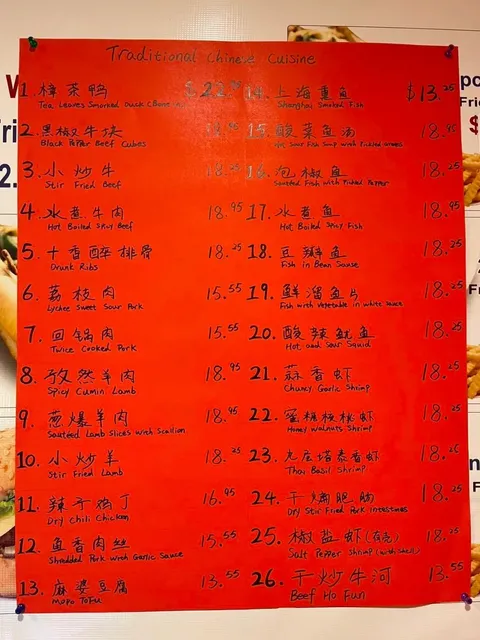 Traditional Chinese Cuisine
1. 樟茶鸭
Tea Leaves Smorked Duck (Bone in)
2. 黑椒牛块
Black Pepper Beef Cubes
3. 小炒牛 18.25
Stir Fried Beef
4. 水煮牛肉 18.95
Hot Boiled Spicy Beef
5. 十香醉排骨 18.25
Drunk Ribs
6. 荔枝肉 15.55
Lychee Sweet Sour Pork
7. 回锅肉 15.55
Twice Cooked Pork
8. 孜然羊肉 18.95
Spicy Cumin Lamb
9. 葱爆羊肉 18.95
Sauteed Lamb Slices with Scallion
10. 小炒羊 18.25
Stir Fried Lamb
11. 辣子鸡丁 16.95
Dry Chili Chicken
12. 鱼香肉丝 15.55
Shredded Pork with Garlic Sauce
13. 麻婆豆腐 13.55
Mapo Tofu
14. 上海熏鱼 $13.25
Shanghai Smoked Fish
15. 酸菜鱼汤
Hot Sour Fish Soup with Pickled
16. 泡椒鱼 18.25
Sauteed Fish with Pickled Pepper
17. 水煮鱼 18.95
Hot Boiled Spicy Fish
18. 豆瓣鱼 18.25
Fish in Bean Sauce
19. 鲜溜鱼片 18.25
Fish with Vegetable in white sauce
20. 酸辣鱿鱼 18.25
Hot and Sour Squid
21. 蒜香虾 18.25
Chunky Garlic Shrimp
22. 蜜糖核桃虾 18.25
Honey Walnuts Shrimp
23. 九层塔泰香虾
Thai Basil Shrimp
24. 干煸肥肠 18.25
Dry Stir Fried Pork Intestines
25. 椒盐虾(有壳) 18.25
Salt Pepper Shrimp (with shell)
26. 干炒牛河 13.55
Beef Ho Fun